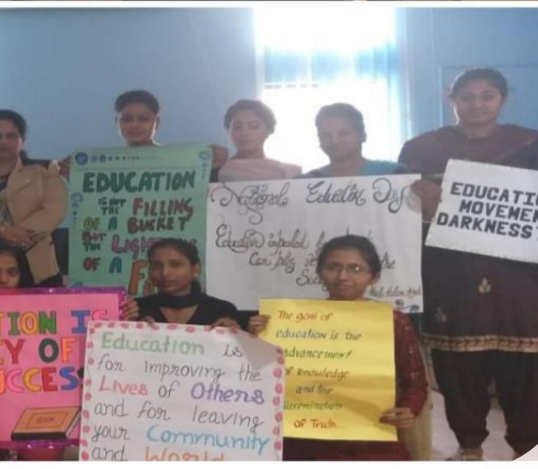 EDUCATION
IS NOT THE FILLING
OF A BUCKET
BUT THE LIGHTING
OF A F
National Education Day
Education imparted by
Can play
the
EDUCATI
MOVEMEN
DARKNESS
TION IS
Y OF
UCCESS
Education is
for improving the
Lives of Others
and for leaving
your Community
and World
The goal of
education is the
advancement
of knowledge
and the
dissemination
of Truth